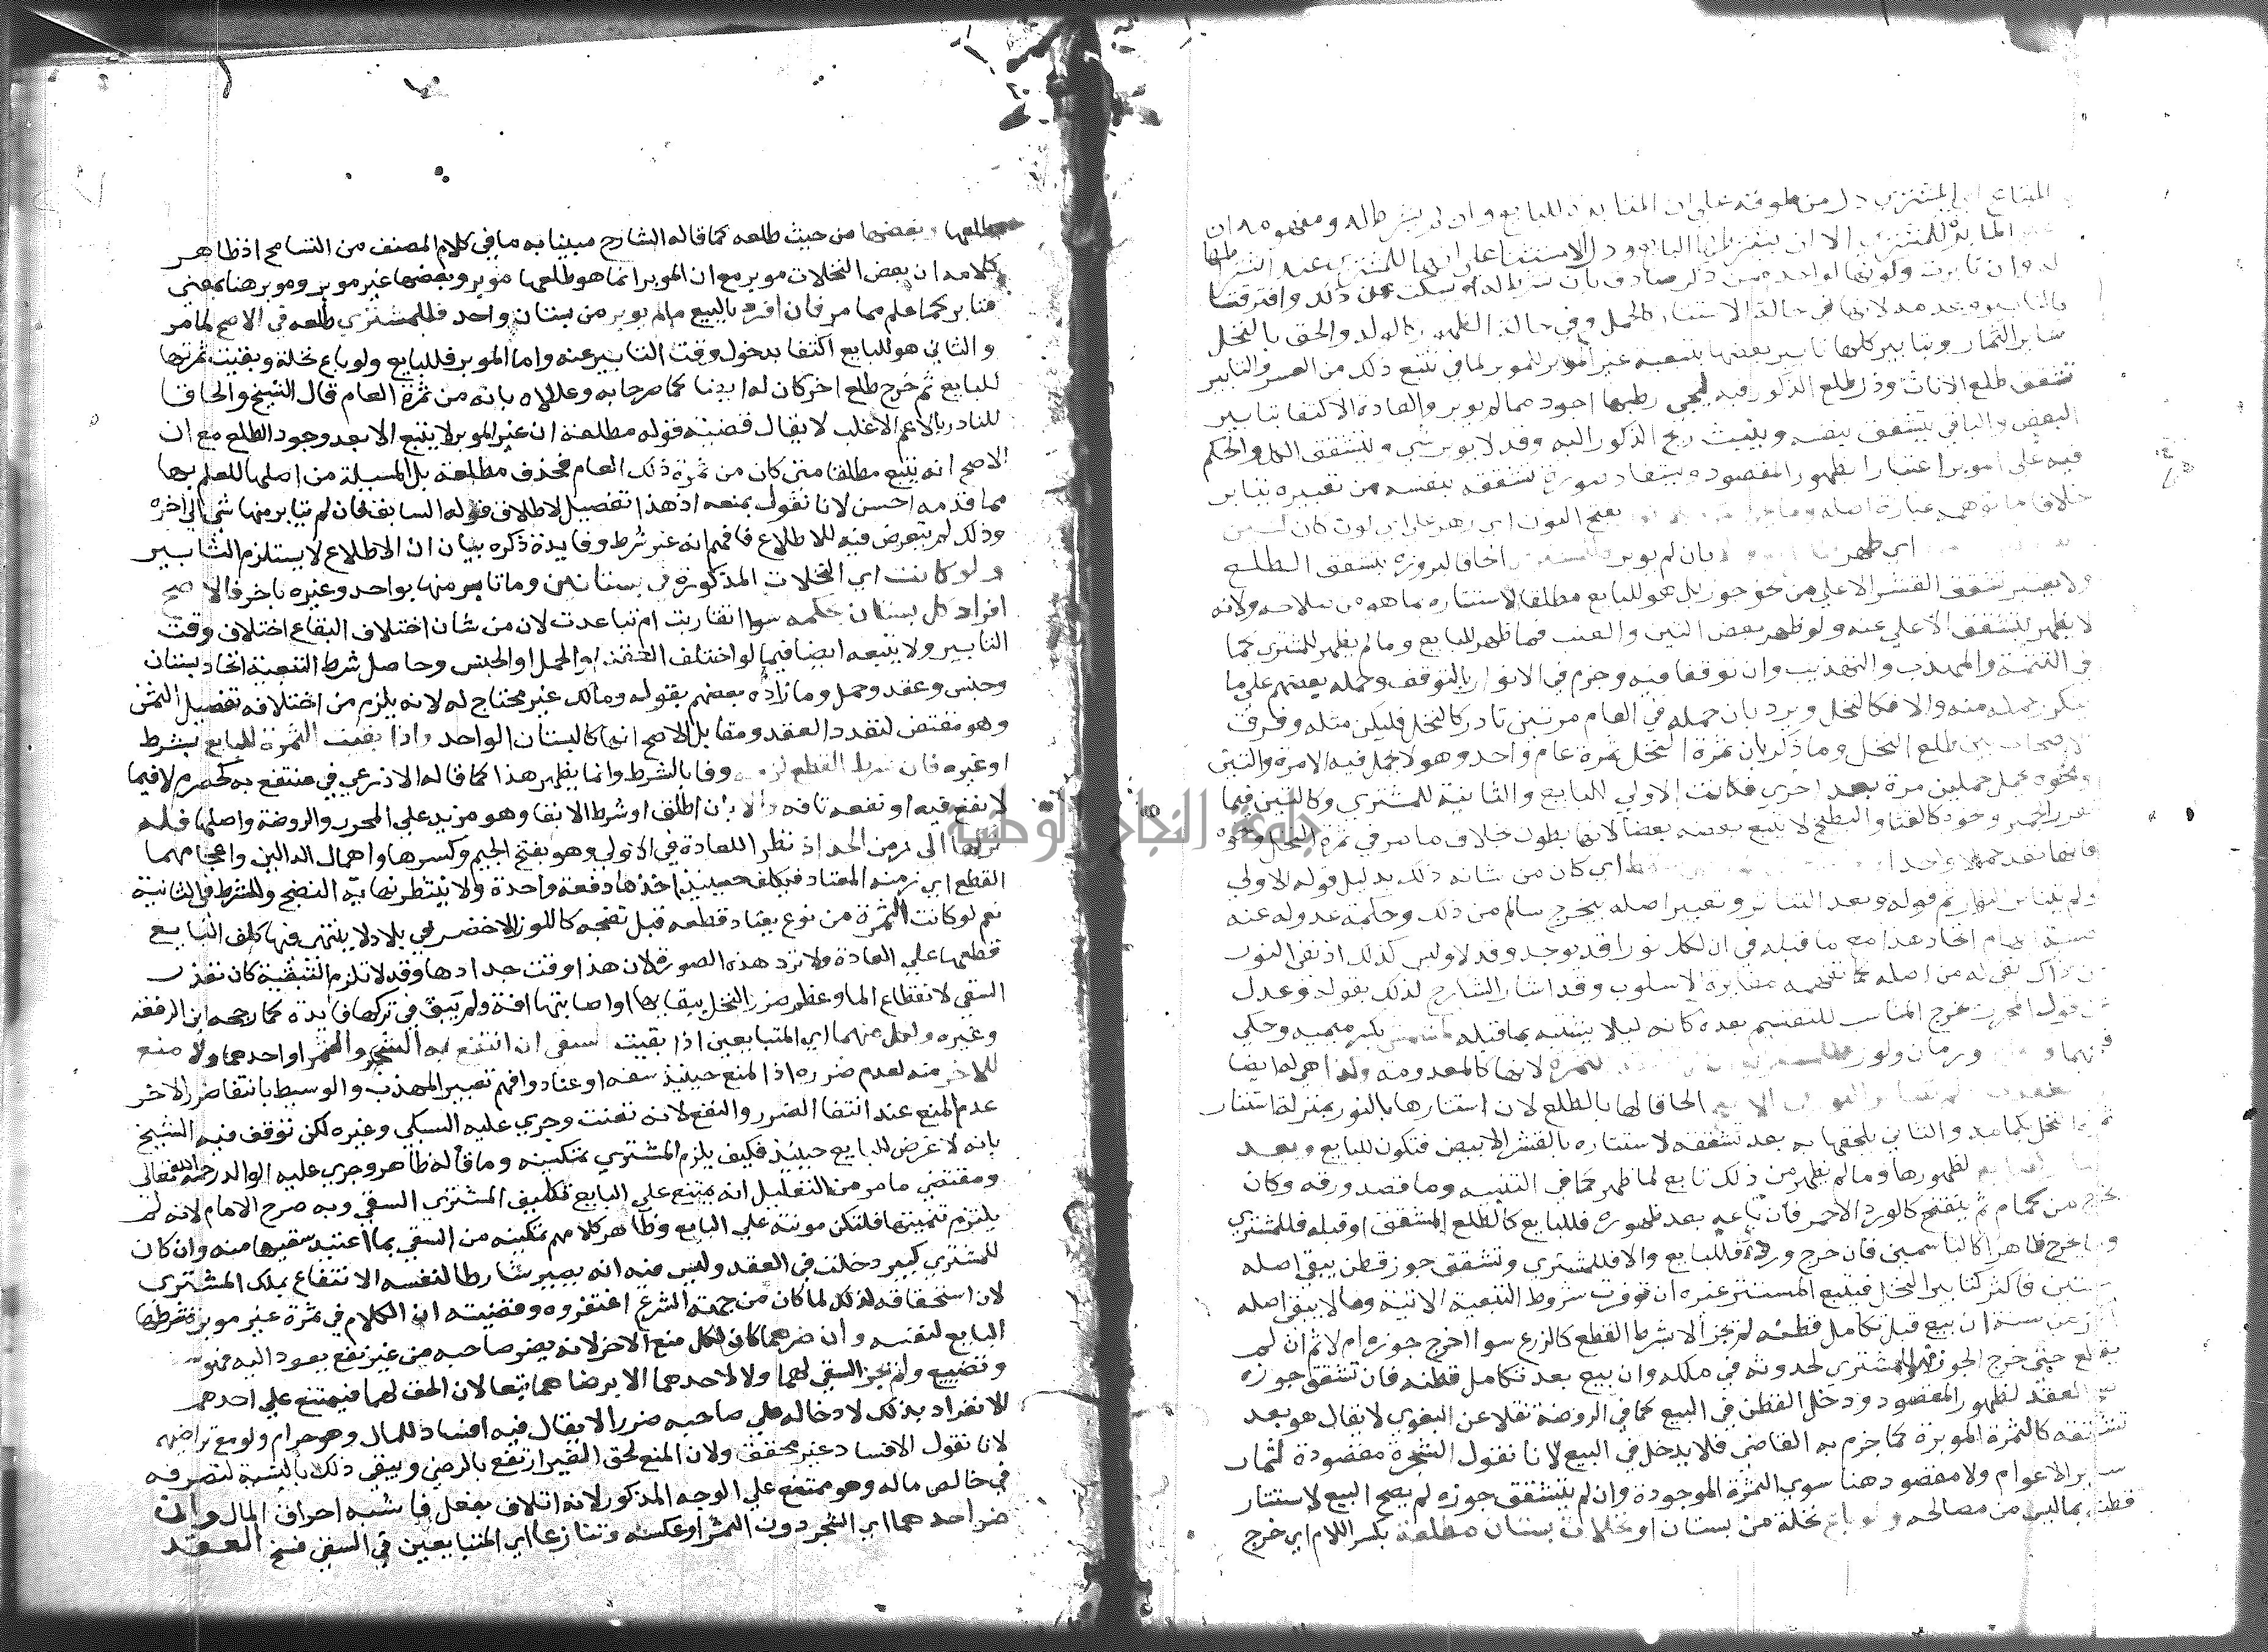 المبتاع اي المشتري دل منطوقه علي ان المؤبرة للبايع وان لم يشرطاله ومفهومه ان
المؤبرة للمشتري الا ان يشترطها البايع ودل الاستثنا علي انها للمشتري عند اشتراطها
له وان تابرت وكونها لواحد ممن ذكر صادف بان شرط له او سكت عن ذلك وافترقتا
بالتابير وعدمه لانها في حالة الاستتار كالحمل وفي حالة الظهور كالولد والحق بالنخل
ساير الثمار وبتابير كلها تابير بعضها بتبعيه غير الموبر للموبر لما في تتبع ذلك من العسر والتابير
تشقق طلع الاناث وذر طلع الذكور فيه ليجي رطبها اجود مما لم يوبر والعادة الاكتفا بتابير
البعض والباقي يتشقق بنفسه وينبث ريح الذكور اليه وقد لا يوبر شي ويتشقق الكل والحكم
فيه كالموبر اعتبارا بظهور المقصود
خلاف ما توهمه عبارة اصله بفتح النون اي زهر علي اي لون كان
اي ظهر بان لم يوبر الحاقا لبروزه بتشقق الطلع
ولا يعتبر تشقق القشر الاعلي من نحو جوز بل هو للبايع مطلقا لاستتاره بما هو من صلاحه ولانه
لا يظهر بتشقق الاعلي عنه ولو ظهر بعض التين والعنب فما ظهر للبايع وما لم يظهر للمشتري كما
في التتمة والمهذب والتهذيب وان توقفا فيه وجزم في الانوار بالتوقف وحمله بعضهم علي ما
يتكرر حمله منه والا فكالنخل ويرد بان حمله في العام مرتين نادر كالنخل فليكن مثله وفرق
الاصحاب بين طلع النخل وما ذكر بان ثمرة النخل ثمرة عام واحد وهو لا يحمل فيه الا مرة والتين
ونحوه يحمل حملين مرة بعد اخري فكانت الاولي للبايع والثانية للمشتري وكالتين فيما
تقرر الجميز ونحوه كالقثا والبطيخ لا يتبع بعضه بعضا لانها بطون خلاف ما مر في ثمرة النخل ونحوه
فانها تعد حملا واحدا اي كان من شانه ذلك بدليل قوله الاولي
ولم يتناثر النور ثم قوله وبعد التناثر وتعبير اصله بيخرج سالم من ذلك وحكمة عدوله عنه
خشية ايهام اتحاد هذا مع ما قبله في ان لكل نورا قد يوجد وقد لا وليس كذلك اذ نفي النور
عن ذاك نفي له من اصله كما تفهمه مغايرة الاسلوب وقد اشار الشارح لذلك بقوله وعدل
عن قول المحرر يخرج المناسب للتقسيم بعده كانه ليلا يشتبه بما قبله كمشمش بكسر ميميه وحكي
فتحهما ورمان ولوز للثمرة لانها كالمعدومة
ولم يتناثر النور في الاصح الحاقا لها بالطلع لان استتارها بالنور بمنزلة استتار
ثمرة النخل بكمامه والثاني يلحقها به بعد تشققه لاستتاره بالقشر الابيض فتكون للبايع وبعد
لظهورها وما لم يظهر من ذلك تابع لما ظهر كما في التنبيه وما قصد ورقه وكان
يخرج من كمام ثم ينفتح كالورد الاحمر فان بيع بعد ظهوره فللبايع كالطلع المتشقق او قبله فللمشتري
وما يخرج ظاهرا كالياسمين فان خرج ورده فللبايع والا فللمشتري وتشقق جوز قطن يبقي اصله
سنتين فاكثر كتابير النخل فيتبع المستتر غيره ان توفرت شروط التبعية الاتية وما لا يبقي اصله
اكثر من سنة ان بيع قبل تكامل قطنه لم يجز الا بشرط القطع كالزرع سوا اخرج جوزه ام لا ثم ان لم
يقطع حتي خرج الجوز فهو للمشتري لحدوثه في ملكه وان بيع بعد تكامل قطنه فان تشقق جوزه
صح العقد لظهور المقصود ودخل القطن في البيع كما في الروضة نقلا عن البغوي لا يقال هو بعد
تشققه كالثمرة الموبرة كما جزم به القاضي فلا يدخل في البيع لانا نقول الشجرة مقصودة لثمار
ساير الاعوام ولا مقصود هنا سوي الثمرة الموجودة وان لم يتشقق جوزه لم يصح البيع لاستتار
قطنه بما ليس من مصالحه ولو باع نخلة من بستان او نخلات بستان مطلعة بكسر اللام اي خرج
طلعها وبعضها من حيث طلعه كما قاله الشارح مبينا به ما في كلام المصنف من التسامح اذ ظاهر
كلامه ان بعض النخلات موبر مع ان الموبر انما هو طلعها موبر وبعضها غير موبر وموبر هنا بمعني
متابر كما علم مما مر فان افرد بالبيع ما لم يوبر من بستان واحد فللمشتري طلعه في الاصح لما مر
والثاني هو للبايع اكتفا بدخول وقت التابير عنه واما الموبر فللبايع ولو باع نخلة وبقيت ثمرتها
للبايع ثم خرج طلع اخر كان له ايضا كما صرحا به وعللاه بانه من ثمرة العام قال الشيخ والحاقا
للنادر بالاعم الاغلب لا يقال قضية قوله مطلعة ان غير الموبر لا يتبع الا بعد وجود الطلع مع ان
الاصح انه يتبع مطلقا متي كان من ثمرة ذلك العام فحذف مطلعة بل المسيلة من اصلها للعلم بها
مما قدمه احسن لانا نقول بمنعه اذ هذا تفصيل لاطلاق قوله السابق فان لم يتابر منها شي الي اخره
وذلك لم يتعرض فيه للاطلاع فافهم انه غير شرط وفايدة ذكره بيان ان الاطلاع لا يستلزم التابير
ولو كانت اي النخلات المذكورة في بستانين وما تابر منها بواحد وغيره باخر فالاصح
افراد كل بستان بحكمه سوا اتقاربت ام تباعدت لان من شان اختلاف البقاع اختلاف وقت
التابير ولا يتبعه ايضا فيما لو اختلف العقد او الحمل او الجنس وحاصل شرط التبعية اتحاد بستان
وجنس وعقد وحمل وما زاده بعضهم بقوله ومالك غير محتاج له لانه يلزم من اختلافه تفصيل الثمن
وهو مقتض لتعدد العقد ومقابل الاصح انها كالبستان الواحد واذا بقيت الثمرة للبايع بشرط
او غيره فان شرط القطع لزمه وفا بالشرط وانما يظهر هذا كما قاله الاذرعي في منتفع به كحصرم لا فيما
لا نفع فيه او نفعه تافه والا بان اطلق او شرط الابقا وهو مزيد علي المحرر والروضة واصلها فله
تركها الي زمن الجداد نظرا للعادة في الاولي وهو بفتح الجيم وكسرها واهمال الدالين واعجامهما
القطع اي زمنه المعتاد فيكلف حينيذ اخذها دفعة واحدة ولا ينتظر نهاية النضج وللشرط في الثانية
نعم لو كانت الثمرة من نوع يعتاد قطعه قبل نضجه كاللوز الاخضر في بلاد لا ينتهي فيها كلف البايع
قطعها علي العادة ولا ترد هذه الصورة لان هذا وقت جدادها وقد لا تلزم التبقية كان تعذر
السقي لانقطاع الما وعظم ضرر النخل ببقايها او اصابتها افة ولم يبق في تركها فايدة كما رجحه ابن الرفعة
وغيره ولكل منهما اي المتبايعين اذا بقيت السقي ان انتفع به الشجر والثمر او احدهما ولا منع
للاخر منه لعدم ضرره اذ المنع حينيذ سفه او عناد وافهم تعبير المهذب والوسيط بانتفا ضرر الاخر
عدم المنع عند انتفا الضرر والنفع لانه تعنت وجري عليه السبكي وغيره لكن توقف فيه الشيخ
بانه لا غرض للبايع حينيذ فكيف يلزم المشتري تمكينه وما قاله ظاهر وجري عليه الوالد رحمه الله تعالي
ومقتضي ما مر من التعليل انه يمتنع علي البايع تكليف المشتري السقي وبه صرح الامام لانه لم
يلتزم تنميتها فلتكن مونته علي البايع وظاهر كلامهم تمكينه من السقي بما اعتيد سقيها منه وان كان
للمشتري كبير دخلت في العقد وليس فيه انه يصير شارطا لنفسه الانتفاع بملك المشتري
لان استحقاقه لذلك لما كان من جهة الشرع اغتفروه وقضيته ان الكلام في ثمرة غير موبرة شرطها
البايع لنفسه وان ضرهما كان لكل منع الاخر لانه يضر صاحبه من غير نفع يعود اليه فهو سفه
وتضييع ولم يجز السقي لهما ولا لاحدهما الا برضاهما معا لان الحق لهما فيمتنع علي احدهما
الانفراد بذلك لادخاله علي صاحبه ضررا لا يقال فيه افساد للمال وهو حرام ولو مع تراضيهما
لانا نقول الافساد غير محقق ولان المنع لحق الغير ارتفع بالرضي ويبقي ذلك بالنسبة لتصرفه
في خالص ماله وهو ممتنع علي الوجه المذكور لانه اتلاف بفعل فاشبه احراق المال وان
ضر احدهما اي الشجر دون الثمر او عكسه وتنازعا اي المتبايعين في السقي فسخ العقد